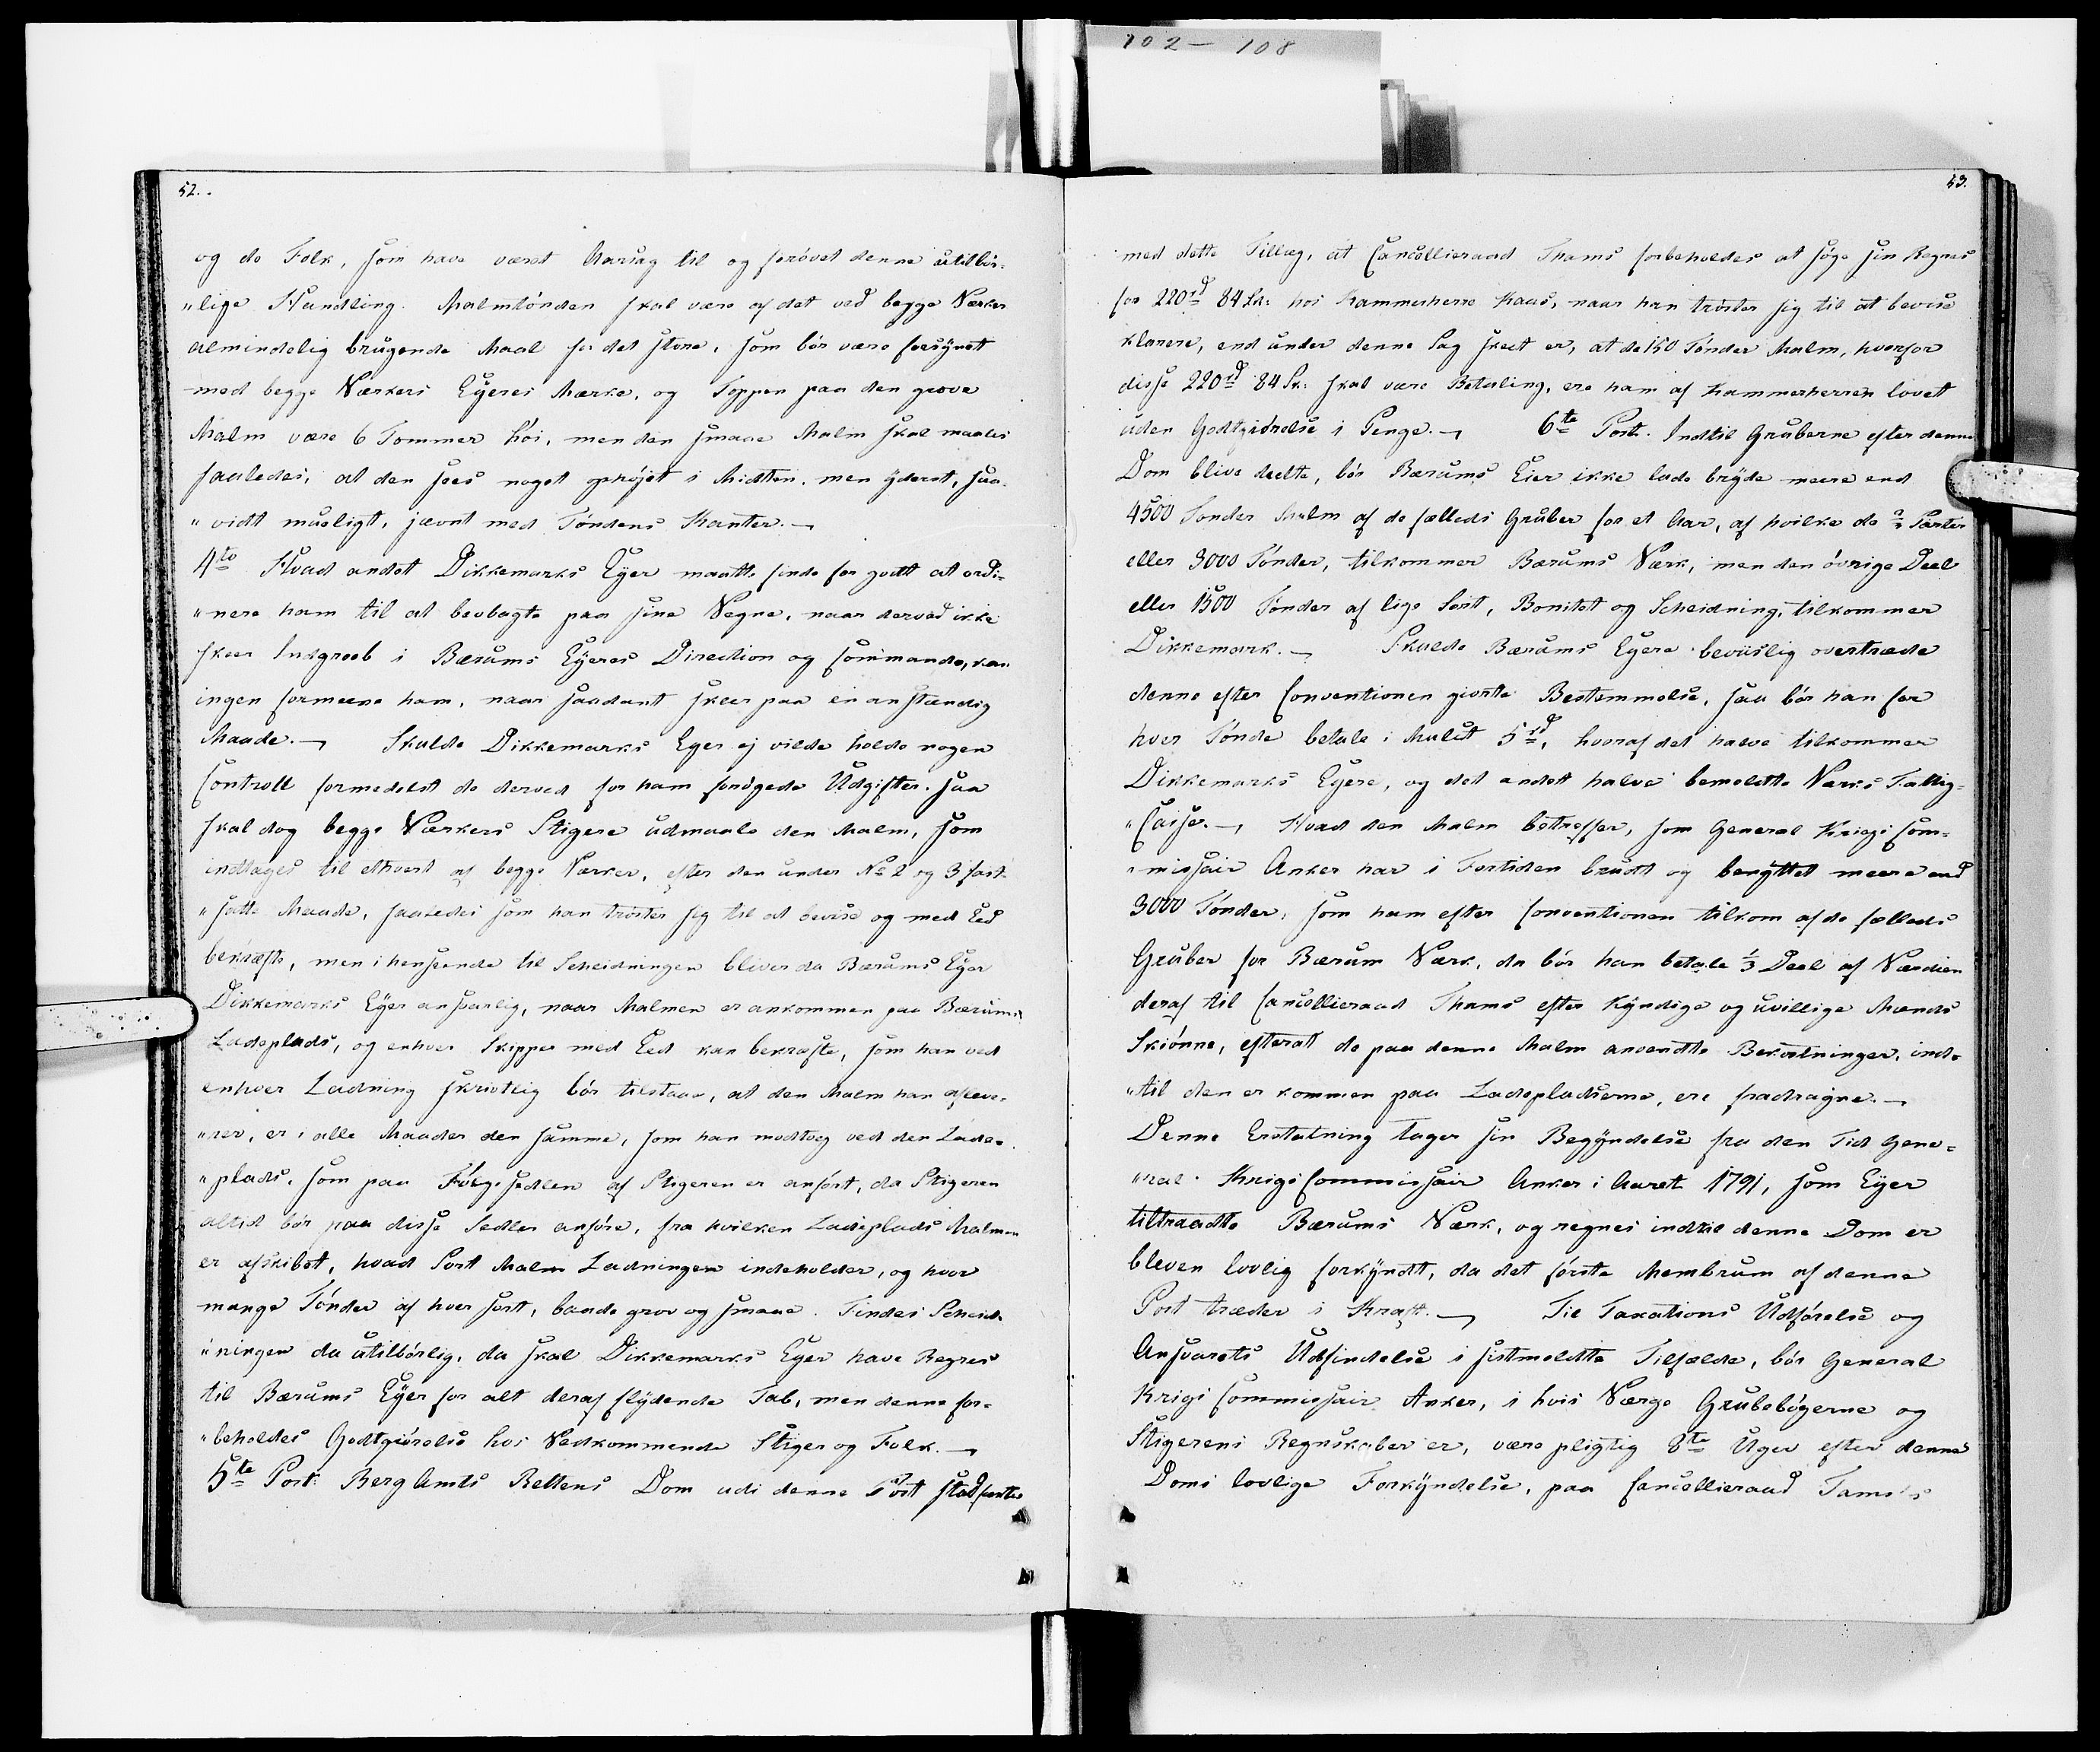 102 — 108
52.
og de Folk, som have været Aarsag til og forøvet denne utilbør-
„lige Handling. Malmtønden skal være af det ved begge Værker
almindelig brugende Maal for det store, som bør være forsynet
med begge Værkers Eyeres Mærke, og Toppen paa den grove
Malm være 6 Tommer høi, men den smaae Malm skal maales
saaledes, at den sees noget ophøjet i Midten, men yderst, saa-
„vidt mueligt, jævnt med Tøndens Kanter. —
4to Hvad andet Dikkemarks Eyer maatte finde for godt at ordi-
„nere ham til at beobagte paa sine Vegne, naar derved ikke
skeer Indgreeb i Bærums Eyeres Direction og Commando, kan
ingen formeene ham, naar saadant skeer paa en anstændig
Maade. — Skulde Dikkemarks Eyer ej vilde holde nogen
Controll formedelst de derved for ham forøgede Udgifter. saa
skal dog begge Værkers Stigere udmaale den Malm, som
indtages til ethvert af begge Værker, efter den under No 2 og 3 fast-
„satte Maade, saaledes som han trøster sig til at bevise og med Eed
bekræfte, men i henseende til Scheidningen bliver da Bærums Eyer
Dikkemarks Eyer ansvarlig, naar Malmen er ankommen paa Bærums
Ladeplads, og enhver Skipper med Eed kan bekræfte, som han ved
enhver Ladning skrivtlig bør tilstaae, at den Malm han afleve-
„rer, er i alle Maader den samme, som han modtog ved den Lade-
„plads, som paa Følgesedlen af Stigeren er anført, da Stigeren
altid bør paa disse Sedler anføre, fra hvilken Ladeplads Malmen
er afskibet, hvad Sort Malm Ladningen indeholder, og hvor
mange Tønder af hver sort, baade grov og smaae. Findes Scheid-
„ningen da utilbørlig, da skal Dikkemarks Eyer have Regres
til Bærums Eyer for alt deraf flydende Tab, men denne for-
„beholdes Godtgiørelse hos Vedkommende Stiger og Folk. —
5te Post: Berg Amts Rettens Dom udi denne Post stadfæstes
53.
med dette Tillæg, at Cancellieraad Thams forbeholdes at søge sin Regres
for 220 rd 84 Sk: hos Kammerherre Kaas, naar han trøster sig til at bevise
klarere, end under denne Sag skeet er, at de 150 Tønder Malm, hvorfor
disse 220 rd 84 Sk: skal være Betaling, ere ham af Kammerherren lovet
uden Godtgiørelse i Penge. — 6te Post. Indtil Gruberne efter denne
Dom blive deelte, bør Bærums Eier ikke lade bryde meere end
4500 Tønder Malm af de fælleds Gruber for et Aar, af hvilke de 2/3 Parter
eller 3000 Tønder, tilkommer Bærums Værk, men den øvrige Deel
eller 1500 Tønder af lige Sort, Bonitet og Scheidning, tilkommer
Dikkemark. — Skulde Bærums Eyere beviislig overtræde
denne efter Conventionen giorte Bestemmelse, saa bør han for
hver Tønde betale i Mulct 5 rd, hvoraf det halve tilkommer
Dikkemarks Eyere, og det andet halve bemeldte Værks Fattig-
„Casse. — Hvad den Malm betræffer, som General Kriegs Com-
„missair Anker har i Fortiden brudt og benyttet meere end
3000 Tønder, som ham efter Conventionen tilkom af de fælleds
Gruber for Bærum Værk, da bør han betale 1/3 Deel af Værdien
deraf til Cancellieraad Thams efter Kyndige og uvillige Mænds
Skiønne, efterat de paa denne Malm anvendte Bekostninger, ind-
„til den er kommen paa Ladepladserne, ere fradragne. —
Denne Erstatning tager sin Begyndelse fra den Tid Gene-
„ral Krigs Commissair Anker i Aaret 1791, som Eyer
tiltraadte Bærums Værk, og regnes indtil denne Dom er
bleven lovlig forkyndt, da det første Membrum af denne
Post træder i Kraft. — Til Taxations Udførelse og
Ansvarets Udfindelse i sistmeldte Tilfælde, bør General
Krigs Commissair Anker, i hvis Værge Grubebøgerne og
Stigerens Regnskaber er, være pligtig 8te Uger efter denne
Doms lovlige Forkyndelse, paa Cancellieraad Tams's